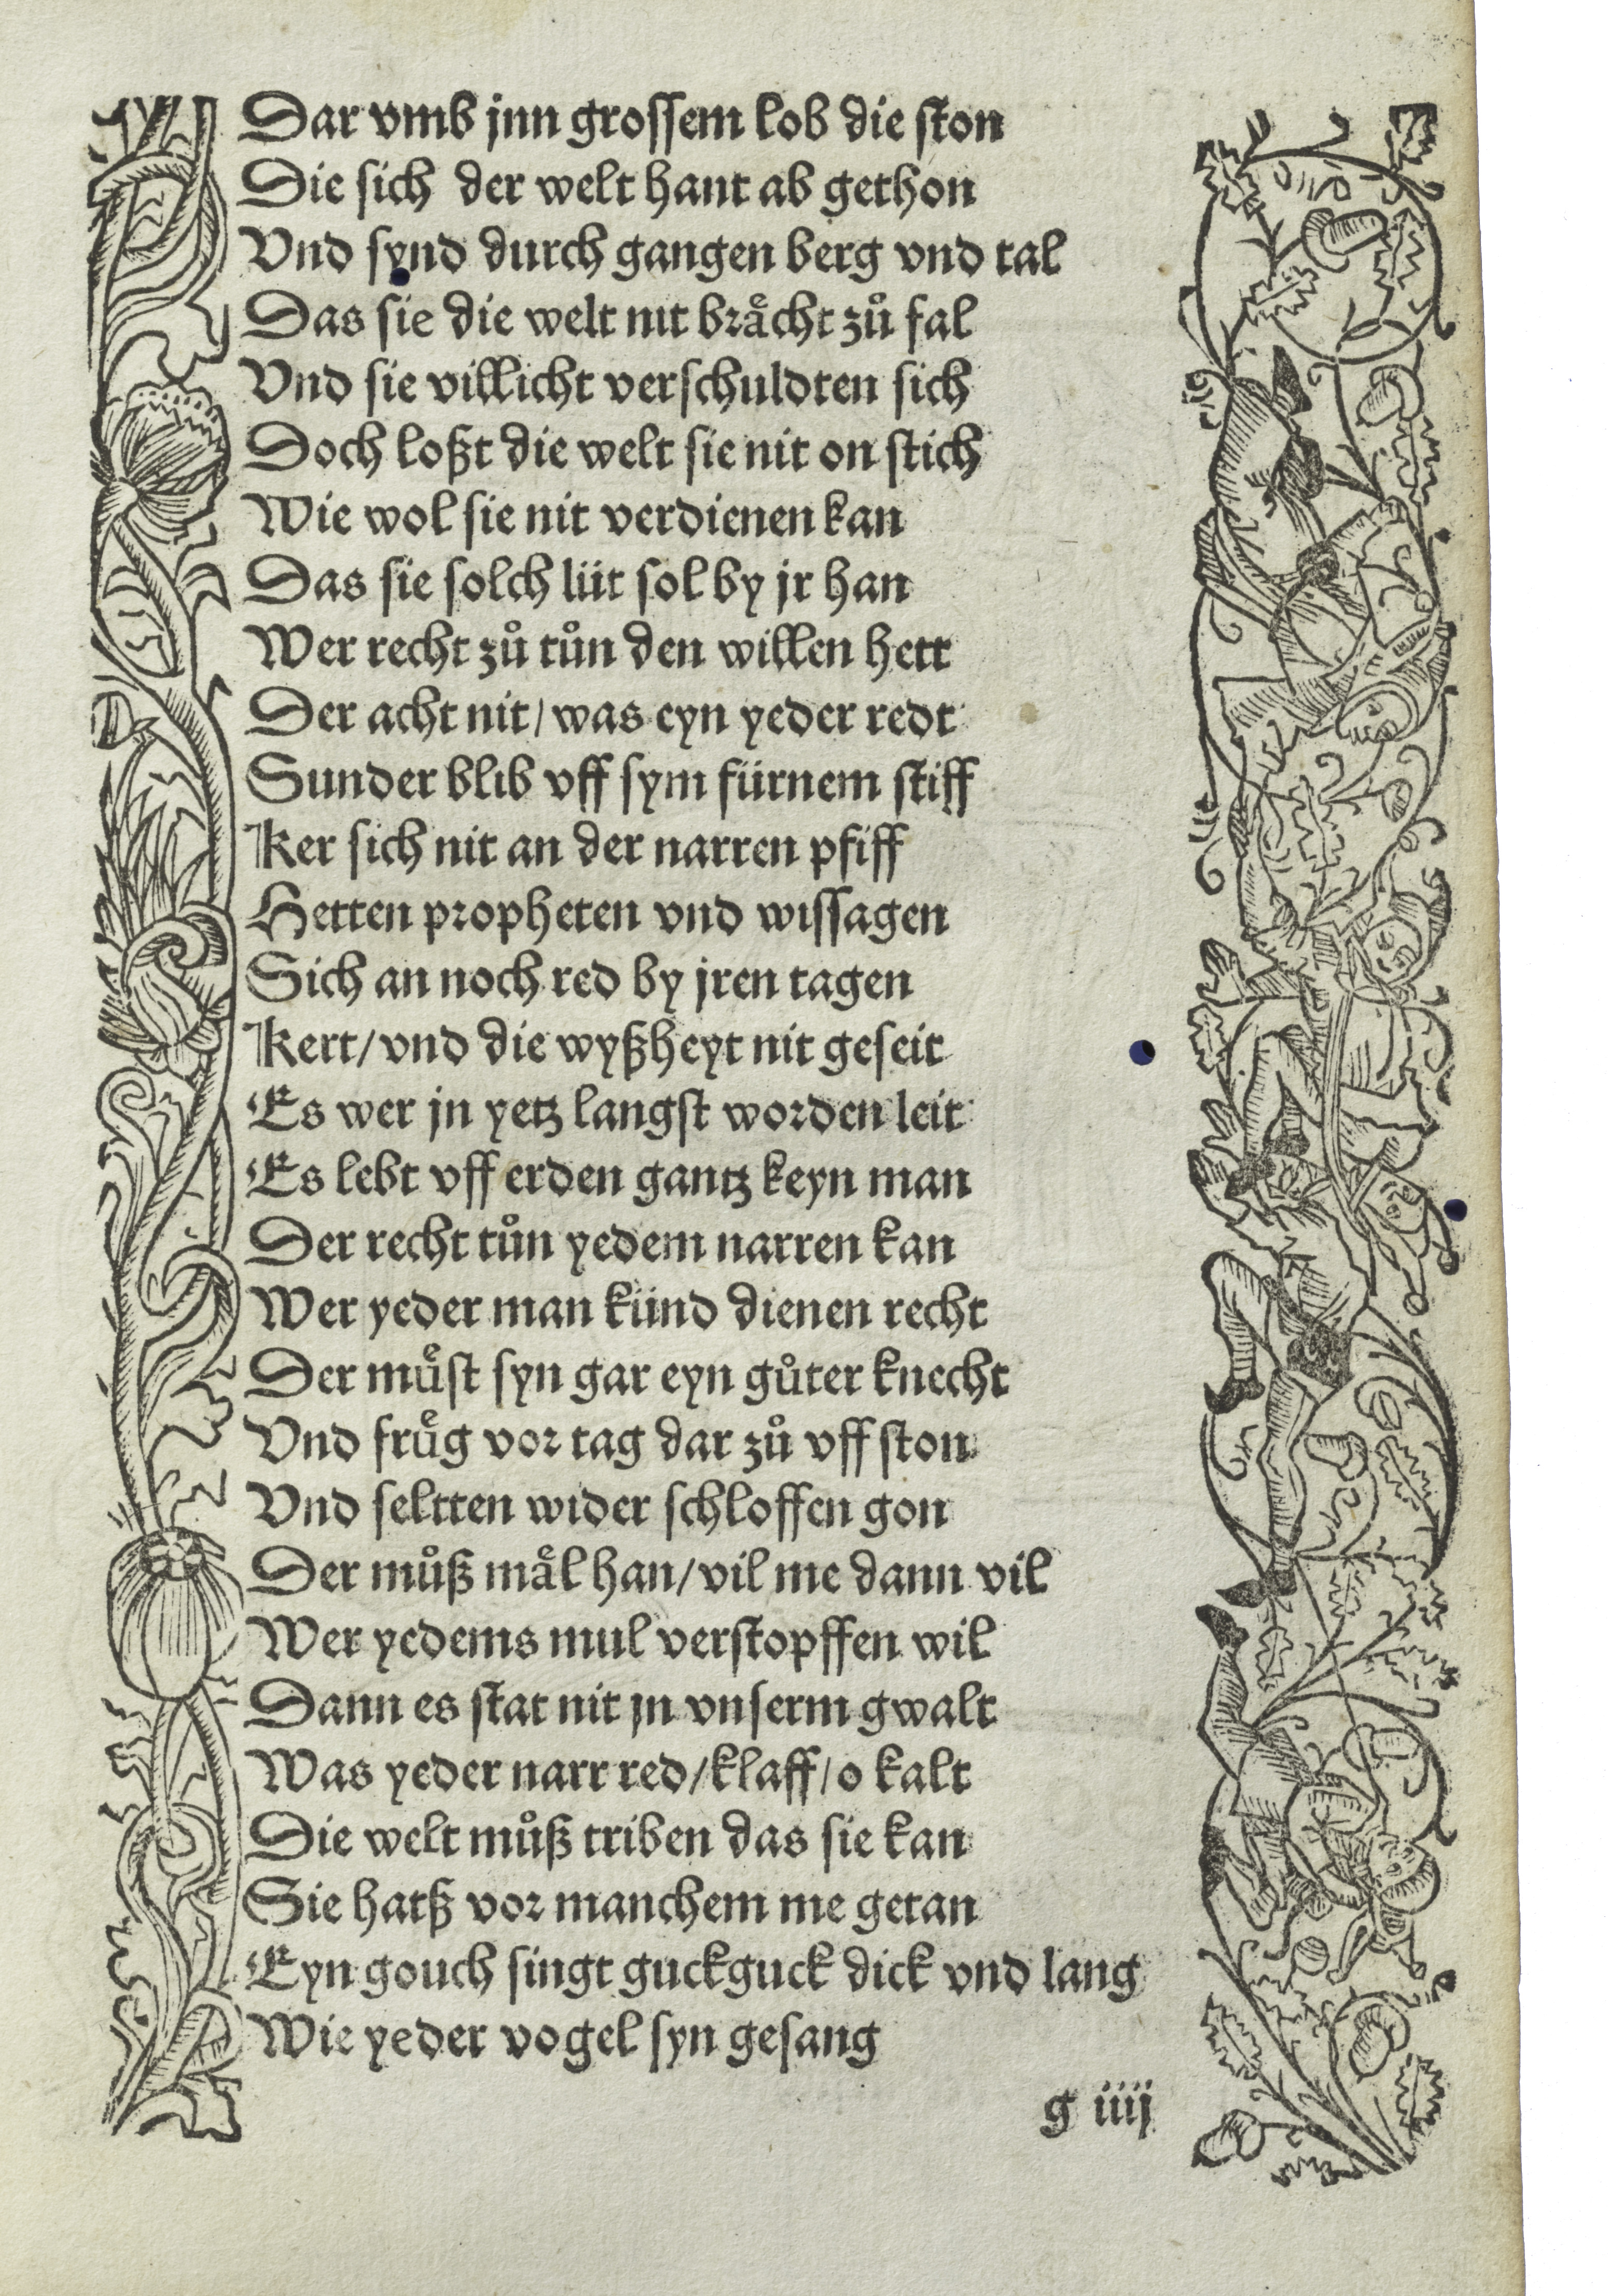 Dar vmb jnn grossem lob die ston
Die sich der welt hant ab gethon
Vnd synd durch gangen berg vnd tal
Das sie die welt nit braͤcht zuͦ fal
Vnd sie villicht verschuldten sich
Doch loßt die welt sie nit on stich
Wie wol sie nit verdienen kan
Das sie solch lüt sol by jr han
Wer recht zuͦ tuͦn den willen hett
Der acht nit/ was eyn yeder redt
Sunder blib vff sym fürnem stiff
Ker sich nit an der narren pfiff
Hetten propheten vnd wissagen
Sich an noch red by jren tagen
Kert/ vnd die wyßheyt nit geseit
Es wer jn yetz langst worden leit
Es lebt vff erden gantz keyn man
Der recht tuͦn yedem narren kan
Wer yeder man künd dienen recht
Der muͤst syn gar eyn guͦter knecht
Vnd fruͤg vor tag dar zuͦ vff ston
Vnd seltten wider schloffen gon
Der muͦß maͤl han/ vil me dann vil
Wer yedems mul verstopffen wil
Dann es stat nit jn vnserm gwalt
Was yeder narr red/ klaff/ o kalt
Die welt muͦß triben das sie kan
Sie hatß vor manchem me getan
Eyn gouch singt guckguck dick vnd lang
Wie yeder vogel syn gesang
g iiij